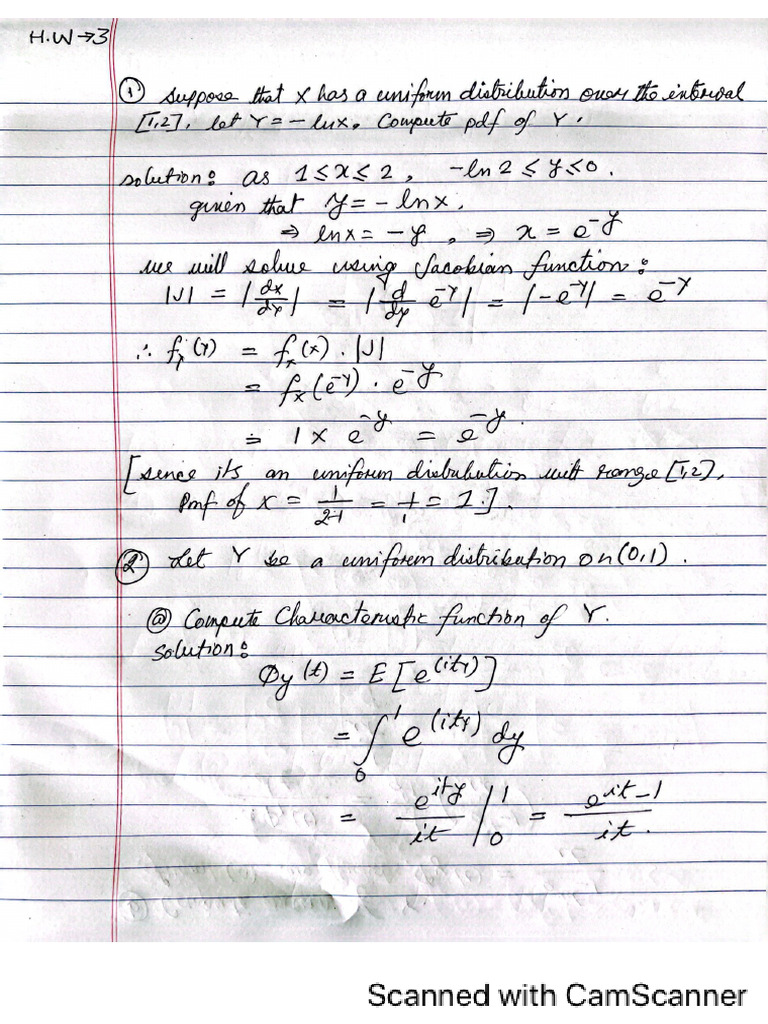 H.W → 3
① Suppose that X has a uniform distribution over the interval
[1,2], let Y = - lnx. Compute pdf of Y.
solution: as 1 ≤ x ≤ 2, -ln 2 ≤ y ≤ 0.
given that y = - lnx.
⇒ lnx = - y, ⇒ x = e^-y
we will solve using Jacobian function:
|J| = |dx/dy| = |d/dy e^-y| = |-e^-y| = e^-y
∴ fy(y) = fx(x) . |J|
= fx(e^-y) . e^-y
= 1 × e^-y = e^-y.
[since its an uniform distribution with range [1,2],
Pmf of x = 1/2-1 = 1/1 = 1.].
② Let Y be a uniform distribution on (0,1).
ⓐ Compute Characteristic function of Y.
Solution:
Φy(t) = E[e^(ity)]
= ∫₀¹ e^(ity) dy
= e^ity/it |₀¹ = e^it-1/it.
Scanned with CamScanner